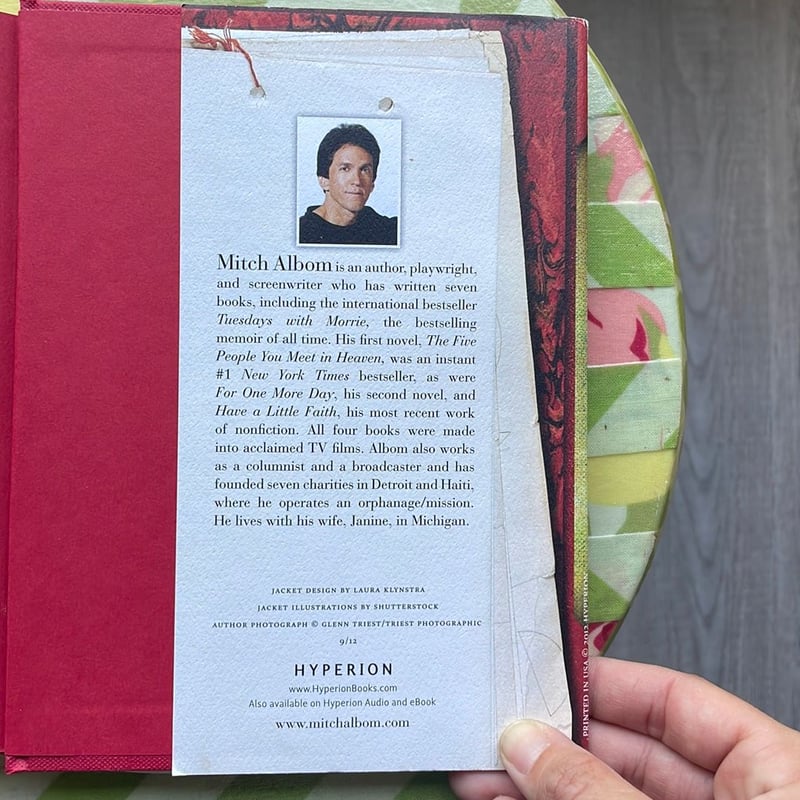 Mitch Albom is an author, playwright,
and screenwriter who has written seven
books, including the international bestseller
Tuesdays with Morrie, the bestselling
memoir of all time. His first novel, The Five
People You Meet in Heaven, was an instant
#1 New York Times bestseller, as were
For One More Day, his second novel, and
Have a Little Faith, his most recent work
of nonfiction. All four books were made
into acclaimed TV films. Albom also works
as a columnist and a broadcaster and has
founded seven charities in Detroit and Haiti,
where he operates an orphanage/mission.
He lives with his wife, Janine, in Michigan.
JACKET DESIGN BY LAURA KLYNSTRA
JACKET ILLUSTRATIONS BY SHUTTERSTOCK
AUTHOR PHOTOGRAPH © GLENN TRIEST/TRIEST PHOTOGRAPHIC
9/12
HYPERION
www.HyperionBooks.com
Also available on Hyperion Audio and eBook
www.mitchalbom.com
PRINTED IN USA © 2012 HYPERION